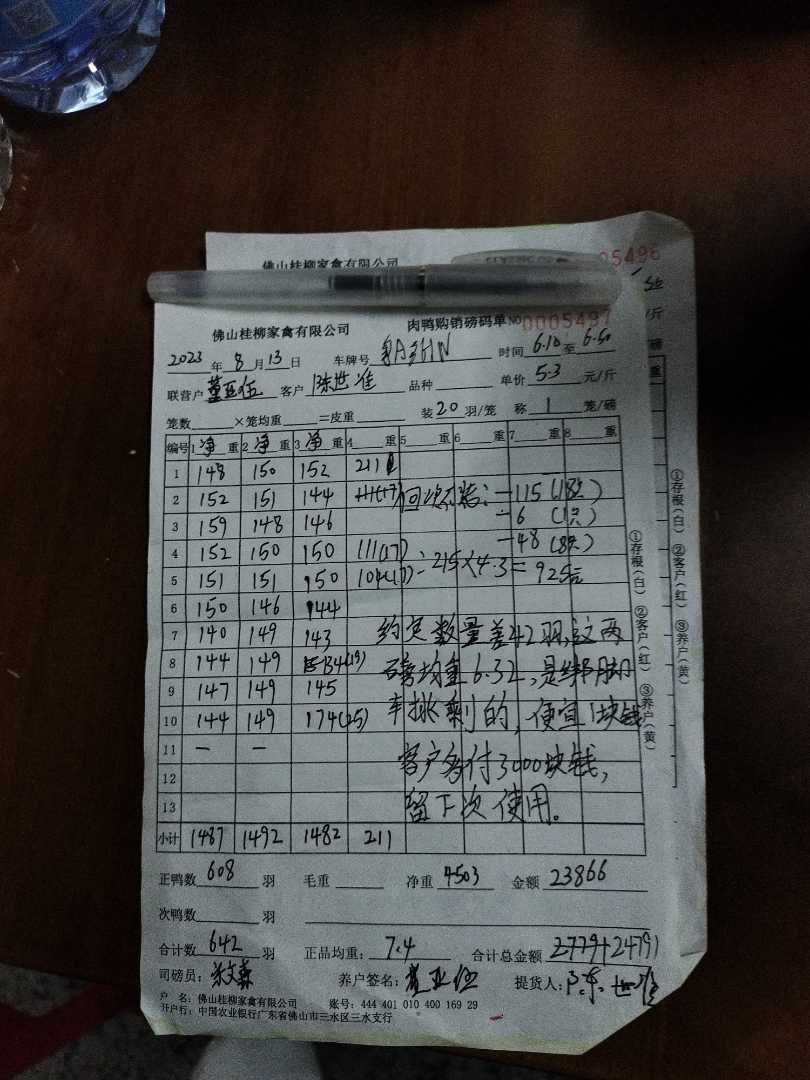 佛山桂柳家禽有限公司
5496
佛山桂柳家禽有限公司 肉鸭购销磅码单 NO 0005497
2023年8月13日 车牌号 时间 6.10 至 6.50
联营户 董亚伍 客户 陈世准 品种 单价 5.3 元/斤
笼数 ×笼均重 =皮重 装 20 羽/笼 称 1 笼/磅
编号 1 净 重 2 净 重 3 净 重 4 重 5 重 6 重 7 重 8 重
1 148 150 152 211
2 152 151 144 -115 (18只)
3 159 148 146 -6 (1只)
4 152 150 150 111(17) -48 (8只)
5 151 151 150 104(17) 215×4.3=925元
6 150 146 144
7 140 149 143 约定数量差42羽,这两
8 144 149 134(19) 磅均重6.32,是绑脚
9 147 149 145 车挑剩的,便宜1块钱
10 144 149 174(25)
11 — — 客户多付3000块钱,
12
13 留下次使用。
小计 1487 1492 1482 211
正鸭数 608 羽 毛重 净重 4503 金额 23866
次鸭数 羽
合计数 642 羽 正品均重: 7.4 合计总金额 2779+24791
司磅员: 养户签名: 董亚伍 提货人: 陈世准
户 名: 佛山桂柳家禽有限公司 账号: 444 401 010 400 169 29
开户行: 中国农业银行广东省佛山市三水区三水支行
①存根(白) ②客户(红) ③养户(黄)
①存根(白) ②客户(红) ③养户(黄)